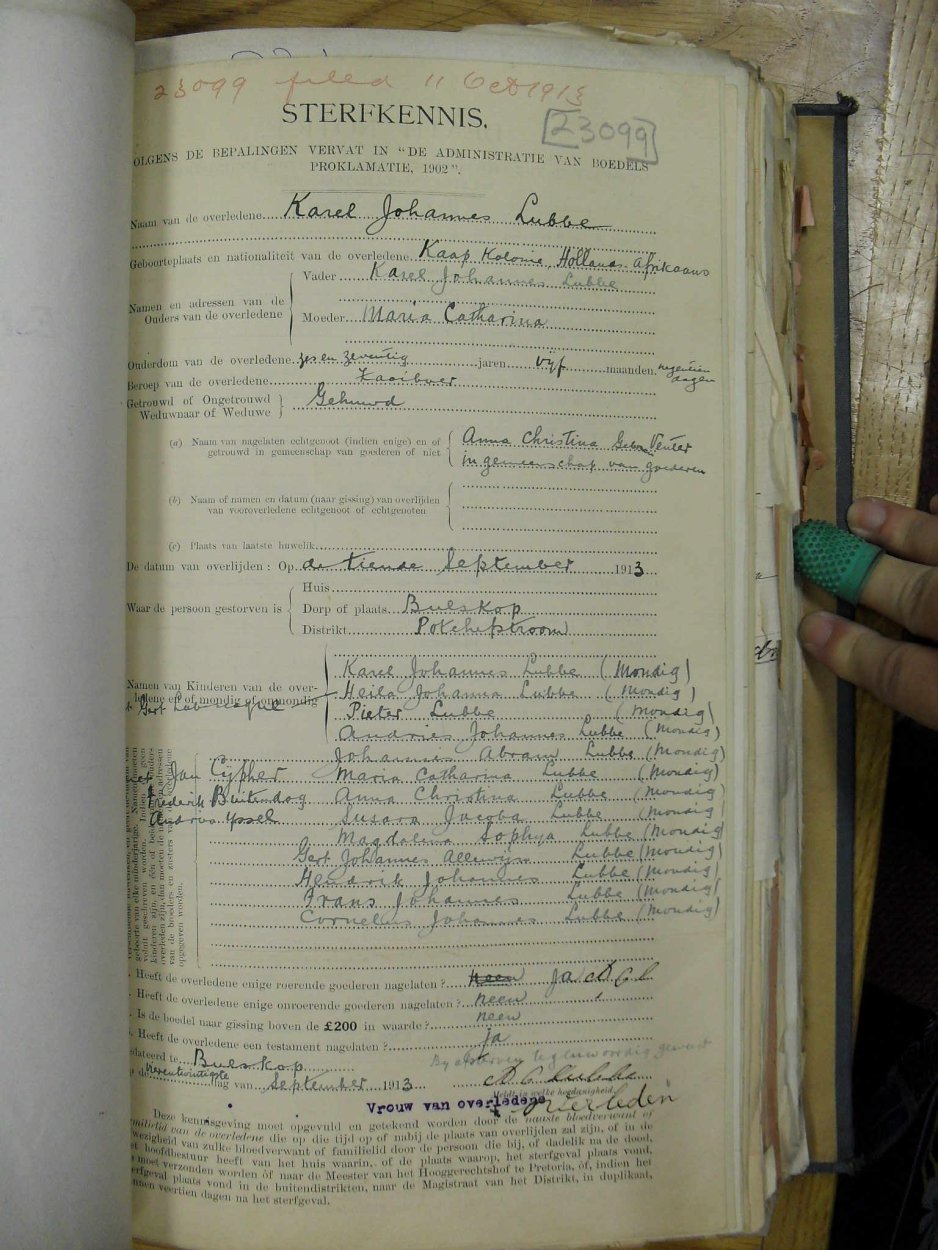 23099 filed 11 Oct 1913
STERFKENNIS.
23099
OLGENS DE BEPALINGEN VERVAT IN "DE ADMINISTRATIE VAN BOEDELS
PROKLAMATIE, 1902".
Naam van de overledene Karel Johannes Lubbe
Geboorteplaats en nationaliteit van de overledene Kaap Kolonie, Hollands Afrikaans
Namen en adressen van de
Ouders van de overledene
Vader Karel Johannes Lubbe
Moeder Maria Catharina
Ouderdom van de overledene zes en zeventig jaren vijf maanden negentien
dagen
Beroep van de overledene
Getrouwd of Ongetrouwd
Weduwnaar of Weduwe
Gehuwd
(a) Naam van nagelaten echtgenoot (indien enige) en of
getrouwd in gemeenschap van goederen of niet
Anna Christina Gebn Venter
in gemeenschap van goederen
(b) Naam of namen en datum (naar gissing) van overlijden
van vooroverledene echtgenoot of echtgenoten
(c) Plaats van laatste huwelik
De datum van overlijden: Op de tiende September 1913
Waar de persoon gestorven is
Huis
Dorp of plaats Bulskop
Distrikt Potchefstroom
Namen van Kinderen van de over-
ledene en of mondig of onmondig
Karel Johannes Lubbe (Mondig)
Heila Johanna Lubbe (Mondig)
Pieter Lubbe (Mondig)
Andries Johannes Lubbe (Mondig)
Johannis Abram Lubbe (Mondig)
Jan Cypher Maria Catharina Lubbe (Mondig)
Frederik Buitendag Anna Christina Lubbe (Mondig)
Andries Yssel Susara Jacoba Lubbe (Mondig)
Magdalena Sophya Lubbe (Mondig)
Gert Johannes Alewijn Lubbe (Mondig)
Hendrik Johannes Lubbe (Mondig)
Frans Johannes Lubbe (Mondig)
Cornelius Johannes Lubbe (Mondig)
geboorte van elke minderjarige. Namen moeten
voluit geschreven worden. Indien er geen
van de broeders en zusters van de overledene
opgegeven worden.
Heeft de overledene enige roerende goederen nagelaten? neen Ja
Heeft de overledene enige onroerende goederen nagelaten? neen
Is de boedel naar gissing boven de £200 in waarde? neen
Heeft de overledene een testament nagelaten? ja
dateerd te Bulskop
By afsterven tegenwoordig geweest
de vierentwintigste dag van September 1913
Meldt in welke hoedanigheid.
Vrouw van overledene
Deze kennisgeving moet opgevuld en getekend worden door de naaste bloedverwant of
familielid van de overledene die op die tijd op of nabij de plaats van overlijden zal zijn, of in de
wezigheid van zulke bloedverwant of familielid door de persoon die bij, of dadelik na de dood,
et hoofdbestuur heeft van het huis waarin, of de plaats waarop, het sterfgeval plaats vond,
moet verzonden worden óf naar de Meester van het Hooggerechtshof te Pretoria, óf, indien het
erfgeval plaats vond in de buitendistrikten, naar de Magistraat van het Distrikt, in duplikaat,
nnen veertien dagen na het sterfgeval.